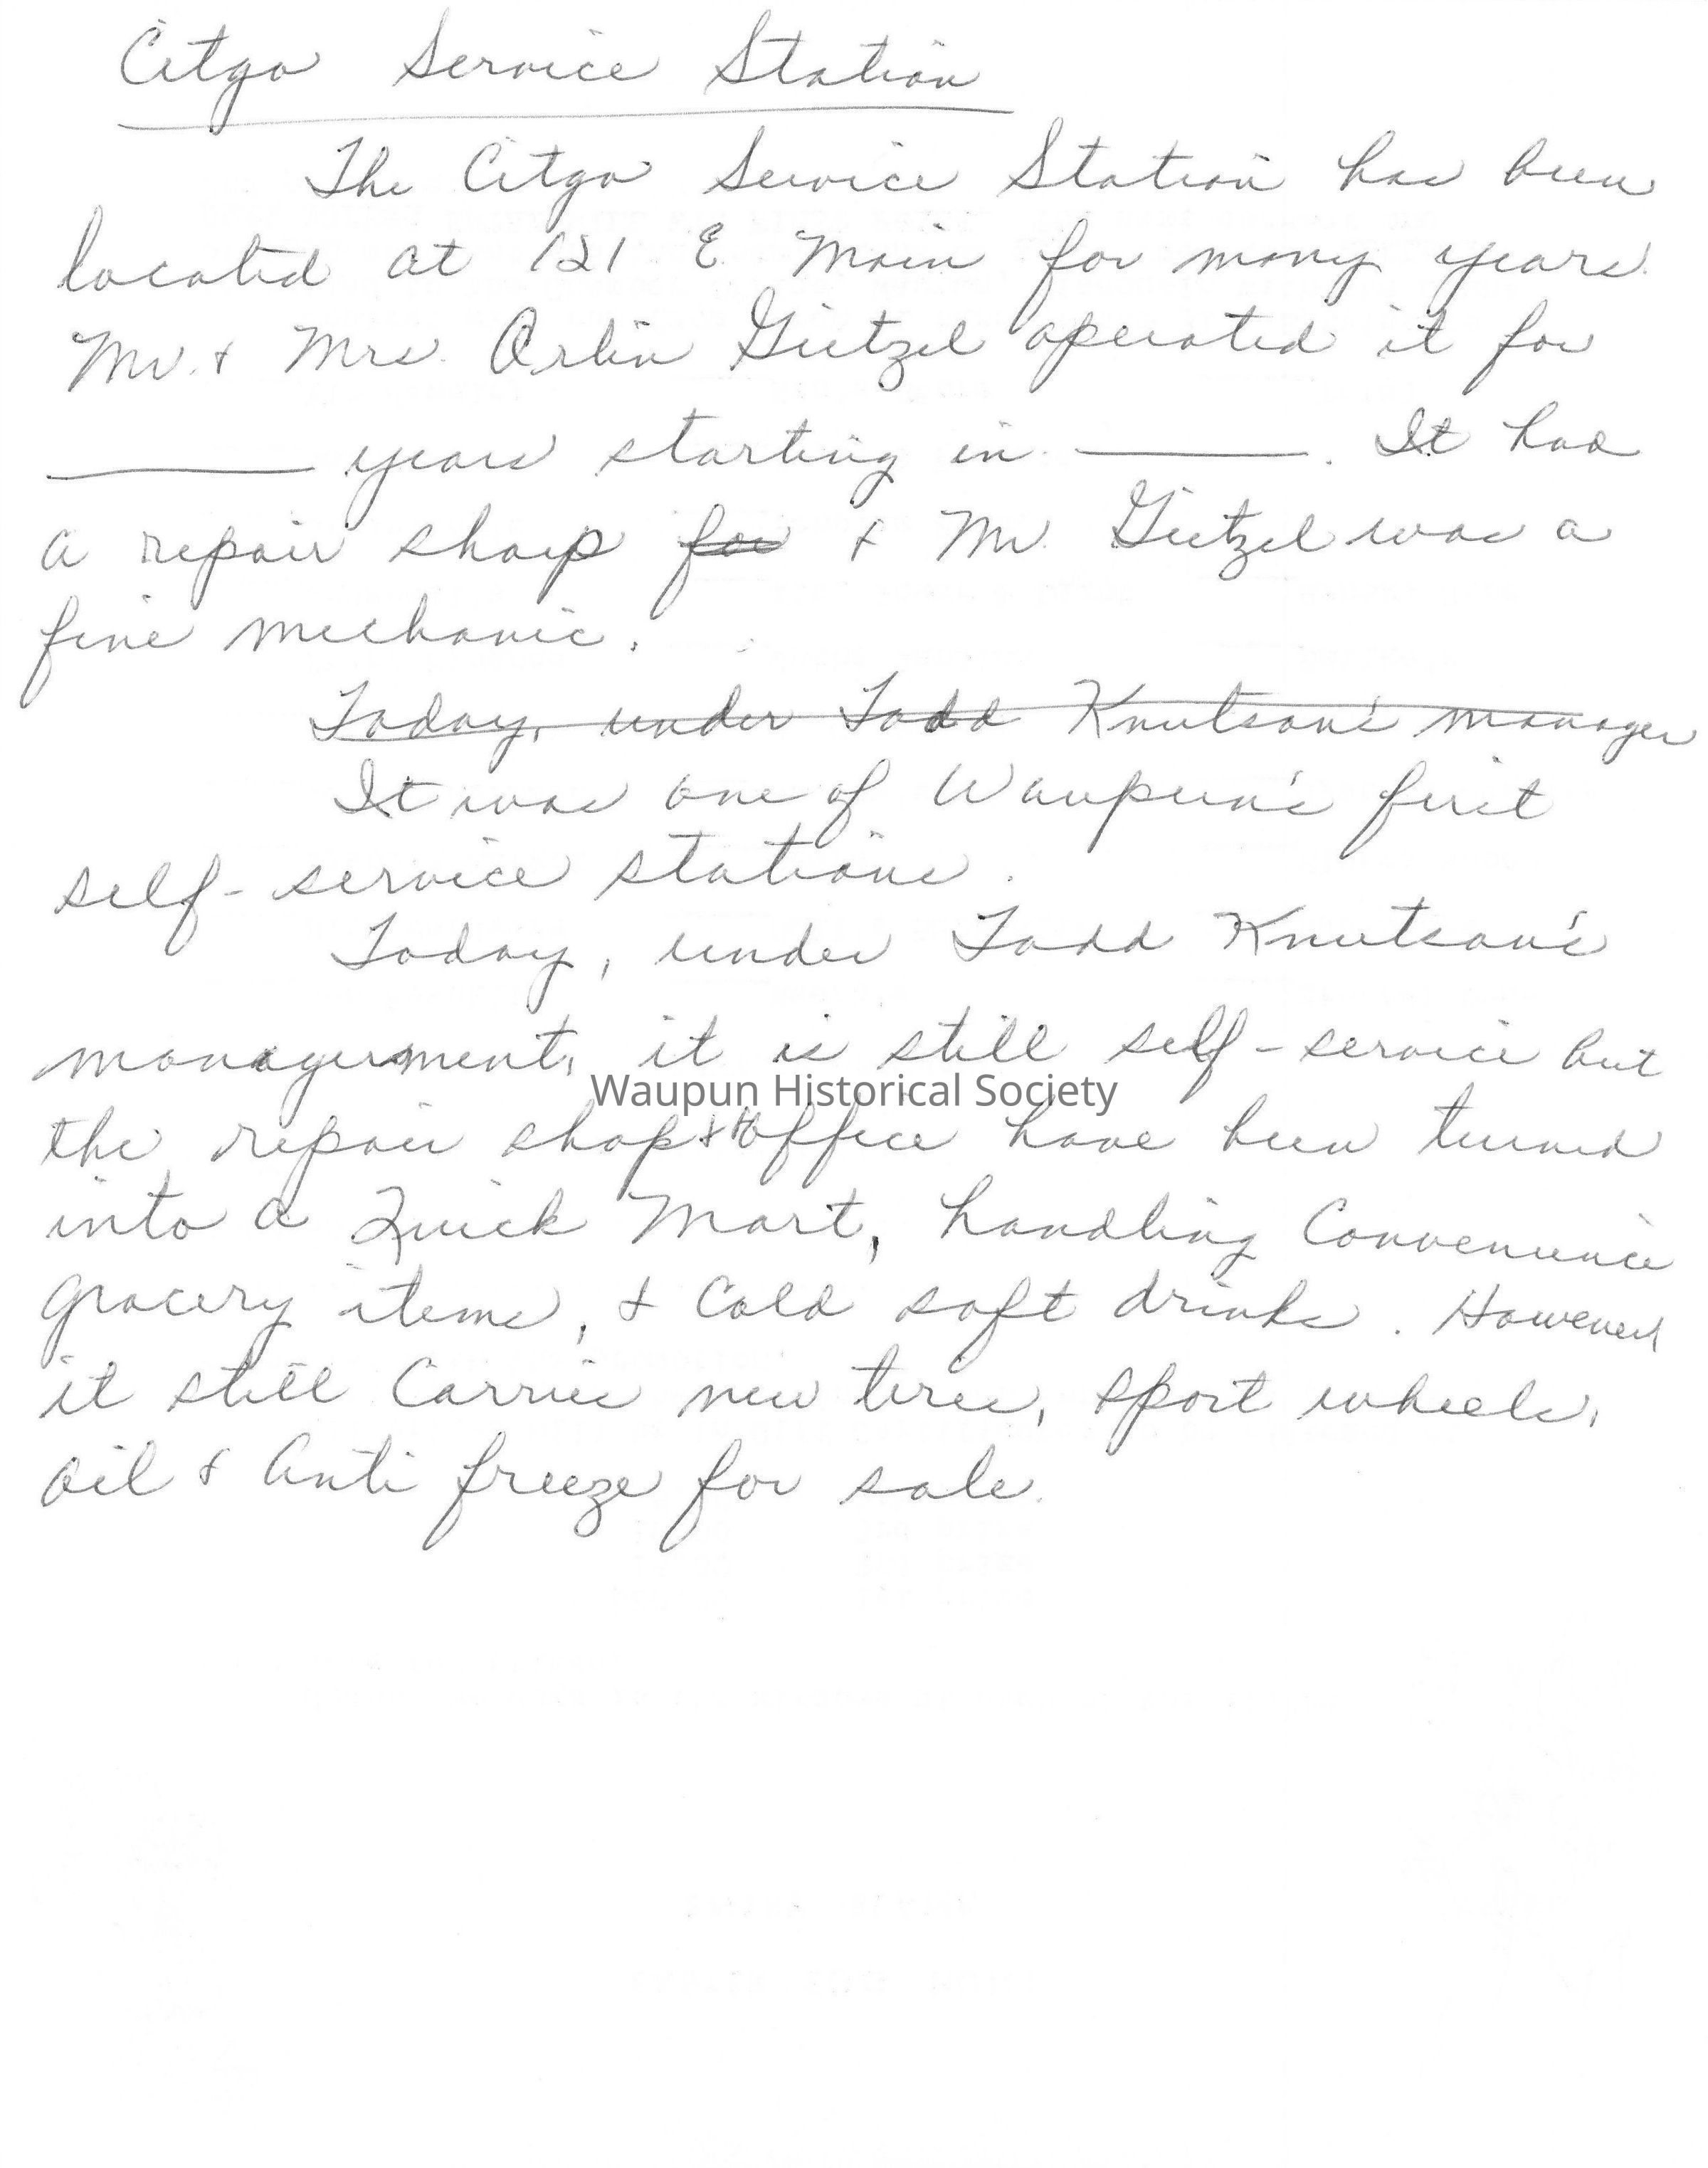 Citgo Service Station
The Citgo Service Station has been
located at 121 E. Main for many years.
Mr. & Mrs. Orlin Gietzel operated it for
______ years starting in ______. It had
a repair shop for & Mr. Gietzel was a
fine mechanic.
Today, under Todd Knutson's manager
It was one of Waupun's first
self-service stations.
Today, under Todd Knutson's
management, it is still self-service but
Waupun Historical Society
the repair shop & office have been turned
into a Quick Mart, handling Convenience
grocery items, & Cold soft drinks. However,
it still Carries new tires, sport wheels,
oil & Anti freeze for sale.